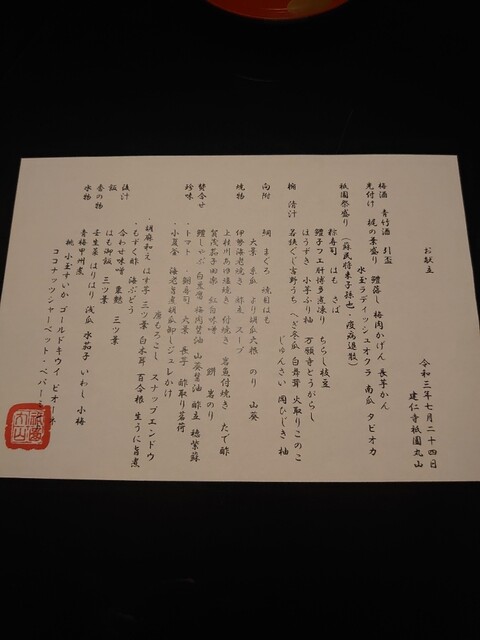 お献立
令和三年七月二十四日
建仁寺祇園丸山
梅酒 青竹酒 引盃
先付け 梶の葉盛り 鱧落し 梅肉かけ 長芋かん
水玉ラディッシュ オクラ 南瓜 タピオカ
祇園祭盛り (蘇民将来子孫也・疫病退散)
粽寿司 はも さば ちらし枝豆
鱧子フエ肝博多煮凍り 万願寺とうがらし
ほうずき 小芋ふり柚
椀 清汁 若狭ぐじ吉野うち へぎ冬瓜 白舞茸 火取りこのこ
じゅんさい 岡ひじき 柚
向附 鯛 まぐろ 焼目はも
大葉 糸瓜 より胡瓜 大根 のり 山葵
焼物 伊勢海老焼き 酢立 スープ
上桂川あゆ塩焼き 付焼き 蓼魚付焼き たで酢
賀茂茄子田楽 紅白味噌 岩のり
賛合せ 鱧しゃぶ 白芋茎 梅肉醤油 山葵醤油 酢立 穂紫蘇
珍味 ・トマト ・鯛寿司 大葉 長芋 酢取り茗荷
・小夏釜 海老旨煮 胡瓜卸しジュレかけ
・胡麻和え はす芋 三ツ葉 白木茸 百合根 生うに旨煮
唐もろこし スナップエンドウ
・もずく酢 海ぶどう
止汁 合わせ味噌 粟麩 三ツ葉
飯 はも御飯 三ツ葉
香の物 壬生菜 はりはり 浅瓜 水茄子 いわし 小梅
水物 青梅甲州煮
桃 小玉すいか ゴールドキウイ ピオーネ
ココナッツシャーベット・ペパーミント